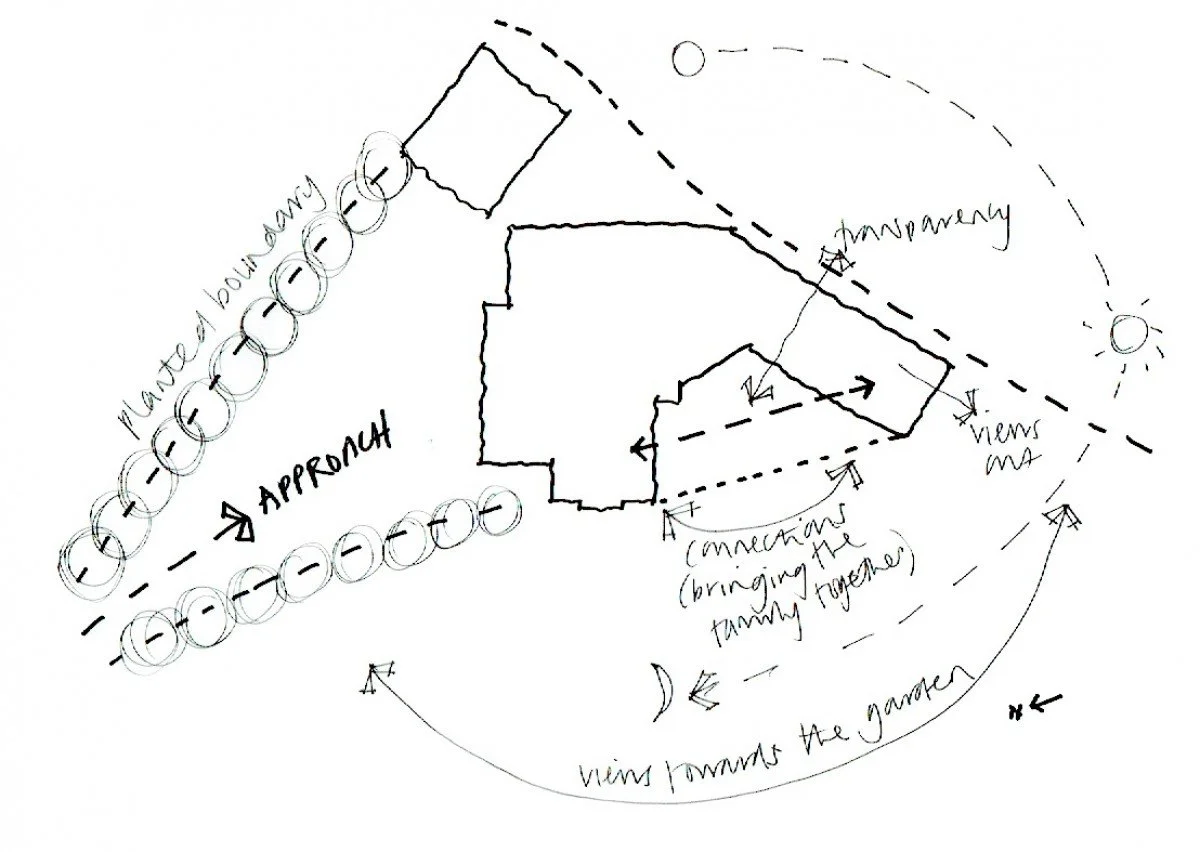 planted boundary
transparency
APPROACH
views
out
connections
(bringing the
family together)
views towards the garden
N